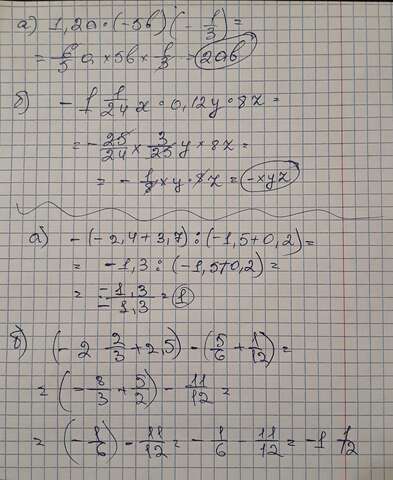 а) 1,2a · (-5b) (- 1/3) =
= 6/5 a × 5b × 1/3 = 2ab
б) - 1 1/24 x · 0,12y · 8z =
= - 25/24 × 3/25 y × 8z =
= - 1/8 xy · 8z = -xyz
а) - (-2,4+3,7) : (-1,5+0,2) =
= -1,3 : (-1,5+0,2) =
= -1,3/-1,3 = 1
б) (-2 2/3 + 2,5) - (5/6 + 1/12) =
= (- 8/3 + 5/2) - 11/12 =
= (- 1/6) - 11/12 = - 1/6 - 11/12 = -1 1/12